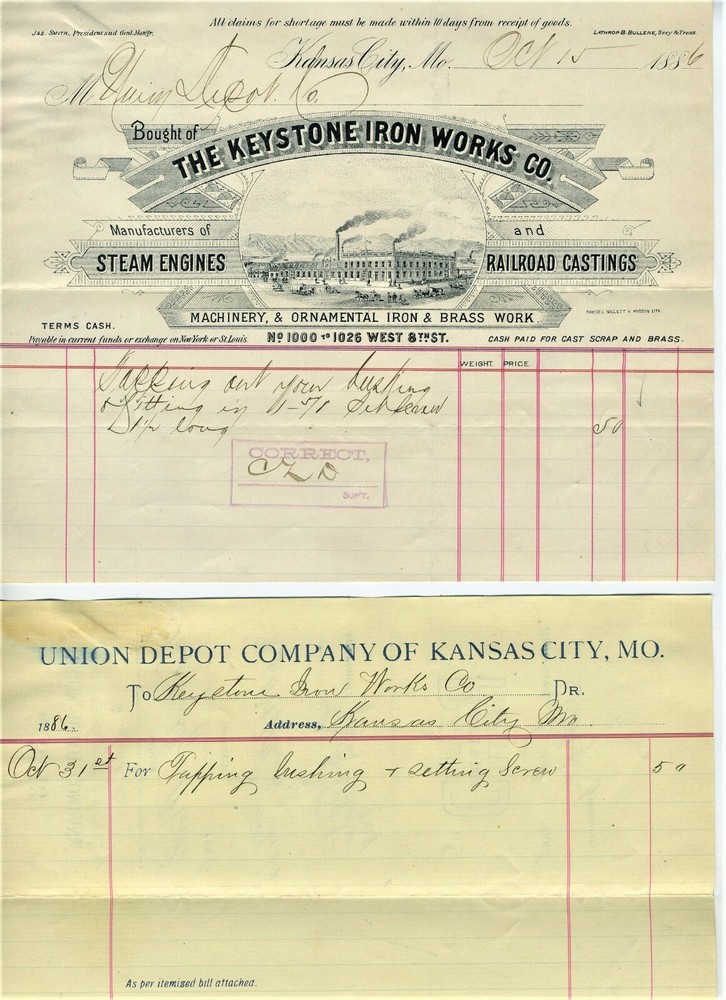 All claims for shortage must be made within 10 days from receipt of goods.
JAS. SMITH, President and Genl. Man'gr. LATHROP B. BULLENE, Secy & Treas.
Kansas City, Mo. Oct 15 1886
M Union Depot Co.
Bought of
THE KEYSTONE IRON WORKS CO.
Manufacturers of and
STEAM ENGINES RAILROAD CASTINGS
MACHINERY, & ORNAMENTAL IRON & BRASS WORK
TERMS CASH.
Payable in current funds or exchange on New York or St. Louis. No 1000 TO 1026 WEST 8TH ST. CASH PAID FOR CAST SCRAP AND BRASS.
WEIGHT. PRICE.
Tapping out your bushing
& fitting in 1-5/8 Set Screw
1½ long 50
CORRECT,
SUP'T.
UNION DEPOT COMPANY OF KANSAS CITY, MO.
To Keystone Iron Works Co DR.
1886. Address, Kansas City Mo.
Oct 31st For Tapping bushing + setting Screw 50
As per itemised bill attached.